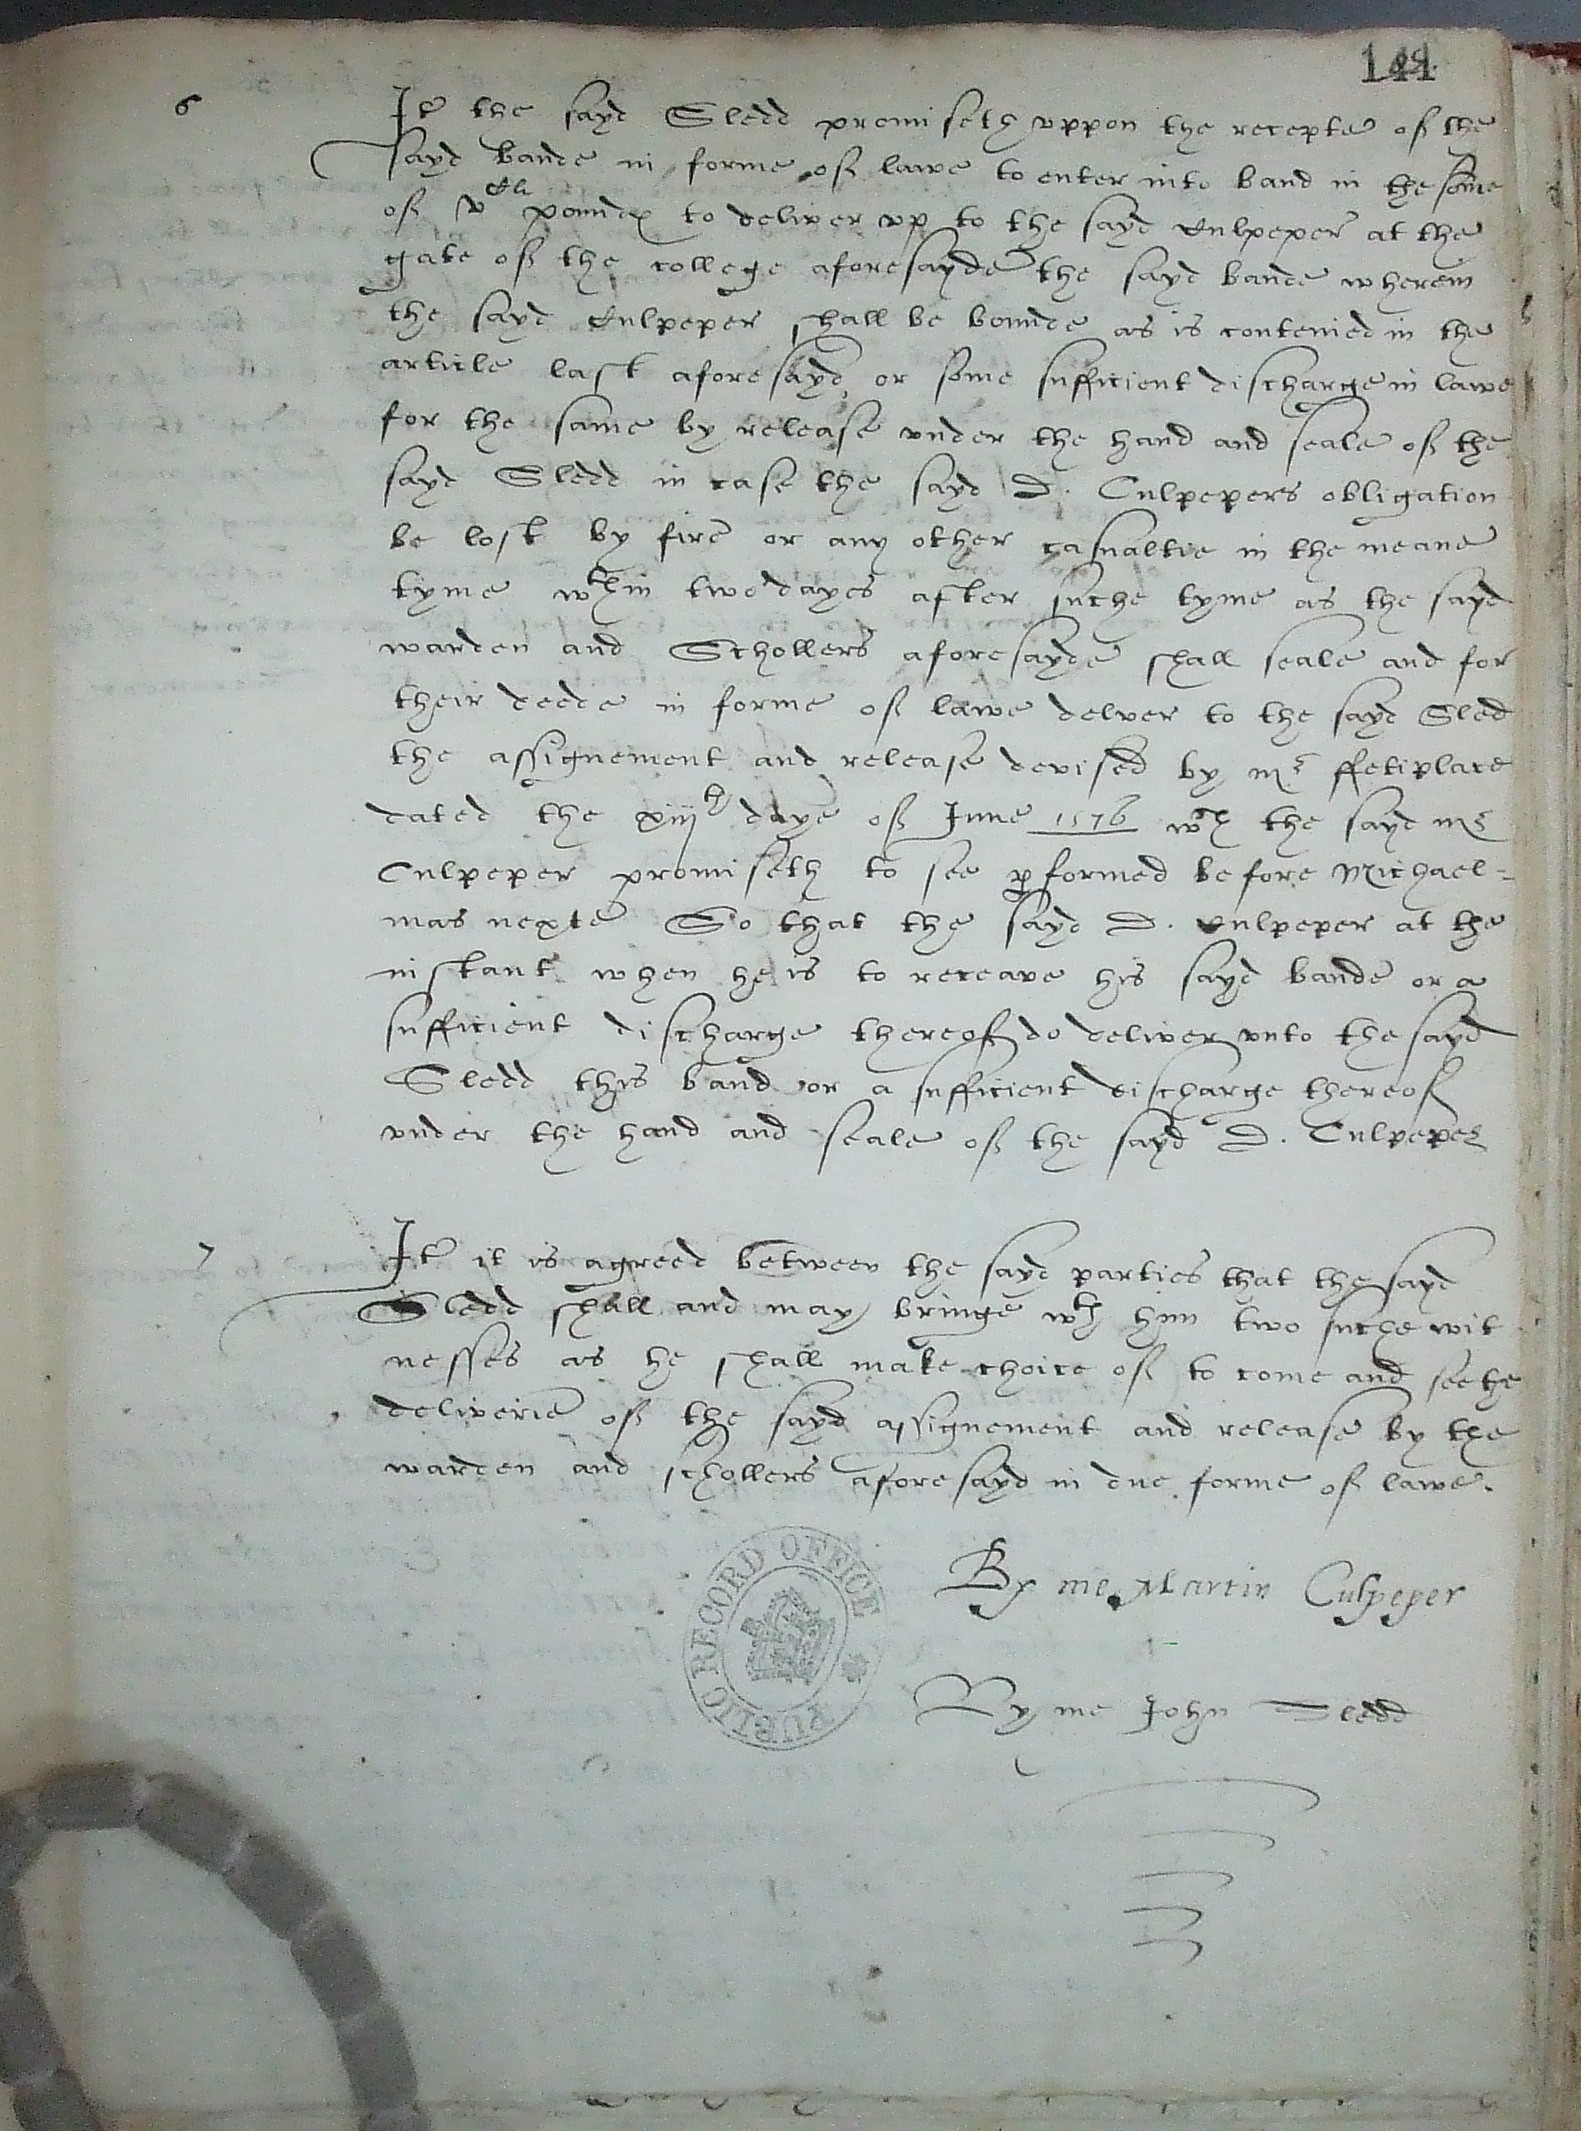 141
6 It the sayd Sledd promiseth vppon the recepte of the
sayd bande in forme of lawe to enter into band in the some
of v poundes to deliver vp to the sayd Culpeper at the
gate of the college aforesayde the sayd bande wherein
the sayd Culpeper shall be bounde as is contenied in the
article last aforesayd or some sufficient discharge in lawe
for the same by release vnder the hand and seale of the
sayd Sledd in case the sayd D. Culpepers obligation
be lost by fire or any other casualtie in the meane
tyme wthin two dayes after suche tyme as the sayd
warden and Schollers aforesayde shall seale and for
their deede in forme of lawe delver to the sayd Sled
the assignement and release devised by mr ffetiplace
dated the xiijth daye of June 1576 wch the sayd mr
Culpeper promiseth to see pformed before Michael=
mas nexte So that the sayd D. Culpeper at the
instant when he is to receave his sayd bande or a
sufficient discharge thereof do deliver vnto the sayd
Sledd this band or a sufficient discharge thereof
vnder the hand and seale of the sayd D. Culpeper
7 It it is agreed betweev the sayd parties that the sayd
Sledd shall and may bringe wth him two suche wit
nesses as he shall make choice of to come and see the
deliverie of the sayd assignement and release by the
warden and schollers aforesayd in due forme of lawe.
By me Martin Culpeper
By me John Sledd
PUBLIC RECORD OFFICE